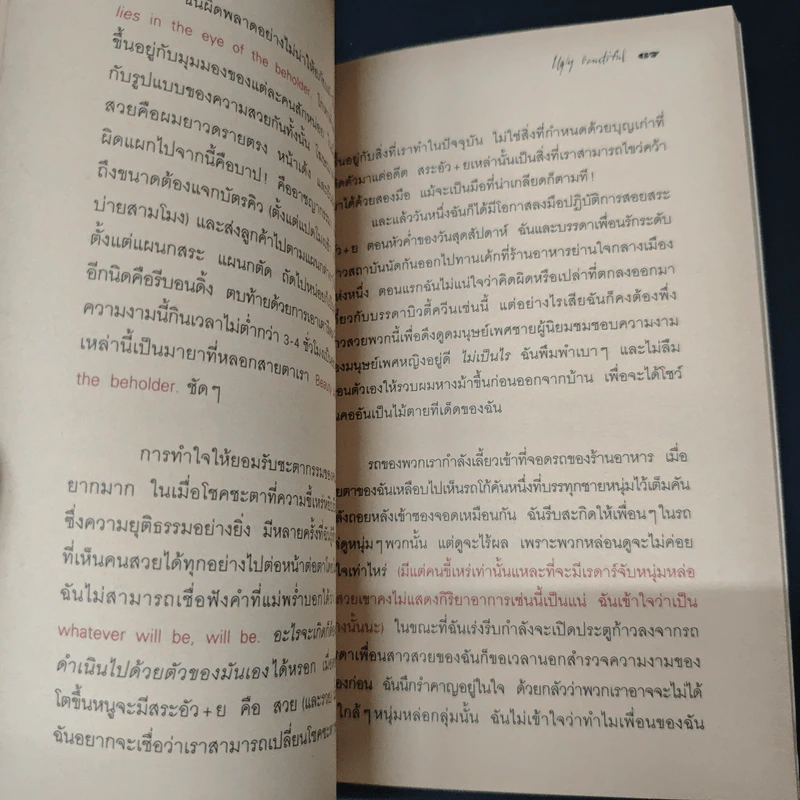 ฉันผิดพลาดอย่างไม่น่าให้อภัย
lies in the eye of the beholder.
ขึ้นอยู่กับมุมมองของแต่ละคนสักหน่อย
กับรูปแบบของความสวยกันทั้งนั้น
สวยคือผมยาวตรายตรง หน้าเด้ง
ผิดแผกไปจากนี้คือบาป! คืออาชญากรรม
ถึงขนาดต้องแจกบัตรคิว (ตั้งแต่แปดโมง
บ่ายสามโมง) และส่งลูกค้าไปตามแผนก
ตั้งแต่แผนกสระ แผนกตัด ถัดไปหน่อย
อีกนิดคือรีบอนดิ้ง ตบท้ายด้วยการเอา
ความงามนี้กินเวลาไม่ต่ำกว่า 3-4 ชั่วโมง
เหล่านี้เป็นมายาที่หลอกสายตาเรา Beauty
the beholder. ชัดๆ
การทำใจให้ยอมรับชะตากรรม
ยากมาก ในเมื่อโชคชะตาที่ความขี้เหร่
ซึ่งความยุติธรรมอย่างยิ่ง มีหลายครั้งที่ฉัน
ที่เห็นคนสวยได้ทุกอย่างไปต่อหน้าต่อตา
ฉันไม่สามารถเชื่อฟังคำที่แม่พร่ำบอกได้
whatever will be, will be. อะไรจะเกิดก็
ดำเนินไปด้วยตัวของมันเองได้หรอก (เมื่อ
โตขึ้นหนูจะมีสระอัว+ย คือ สวย (และรวย
ฉันอยากจะเชื่อว่าเราสามารถเปลี่ยนโชคชะตา
Ugly Beautiful
ขึ้นอยู่กับสิ่งที่เราทำในปัจจุบัน ไม่ใช่สิ่งที่กำหนดด้วยบุญเก่าที่
ติดตัวมาแต่อดีต สระอัว+ยเหล่านั้นเป็นสิ่งที่เราสามารถไขว่คว้า
มาได้ด้วยสองมือ แม้จะเป็นมือที่น่าเกลียดก็ตามที!
และแล้ววันหนึ่งฉันก็ได้มีโอกาสลงมือปฏิบัติการสอยสระ
อัว+ย ตอนหัวค่ำของวันสุดสัปดาห์ ฉันและบรรดาเพื่อนรักระดับ
ดาวสถาบันนัดกันออกไปทานเค้กที่ร้านอาหารย่านใจกลางเมือง
แห่งหนึ่ง ตอนแรกฉันไม่แน่ใจว่าคิดผิดหรือเปล่าที่ตกลงออกมา
เที่ยวกับบรรดาบิวตี้ควีนเช่นนี้ แต่อย่างไรเสียฉันก็คงต้องพึ่ง
สาวสวยพวกนี้เพื่อดึงดูดมนุษย์เพศชายผู้นิยมชมชอบความงาม
ของมนุษย์เพศหญิงอยู่ดี ไม่เป็นไร ฉันพึมพำเบาๆ และไม่ลืม
เตือนตัวเองให้รวบผมหางม้าขึ้นก่อนออกจากบ้าน เพื่อจะได้โชว์
ต้นคออันเป็นไม้ตายทีเด็ดของฉัน
รถของพวกเรากำลังเลี้ยวเข้าที่จอดรถของร้านอาหาร เมื่อ
สายตาของฉันเหลือบไปเห็นรถโก้คันหนึ่งที่บรรทุกชายหนุ่มไว้เต็มคัน
กำลังถอยหลังเข้าซองจอดเหมือนกัน ฉันรีบสะกิดให้เพื่อนๆในรถ
ดูหนุ่มๆพวกนั้น แต่ดูจะไร้ผล เพราะพวกหล่อนดูจะไม่ค่อย
สนใจเท่าไหร่ (มีแต่คนขี้เหร่เท่านั้นแหละที่จะมีเรดาร์จับหนุ่มหล่อ
สวยเขาคงไม่แสดงกิริยาอาการเช่นนี้เป็นแน่ ฉันเข้าใจว่าเป็น
อย่างนั้นนะ) ในขณะที่ฉันเร่งรีบกำลังจะเปิดประตูก้าวลงจากรถ
บรรดาเพื่อนสาวสวยของฉันก็ขอเวลานอกสำรวจความงามของ
ตัวเองก่อน ฉันนึกรำคาญอยู่ในใจ ด้วยกลัวว่าพวกเราอาจจะไม่ได้
ใกล้ๆหนุ่มหล่อกลุ่มนั้น ฉันไม่เข้าใจว่าทำไมเพื่อนของฉัน